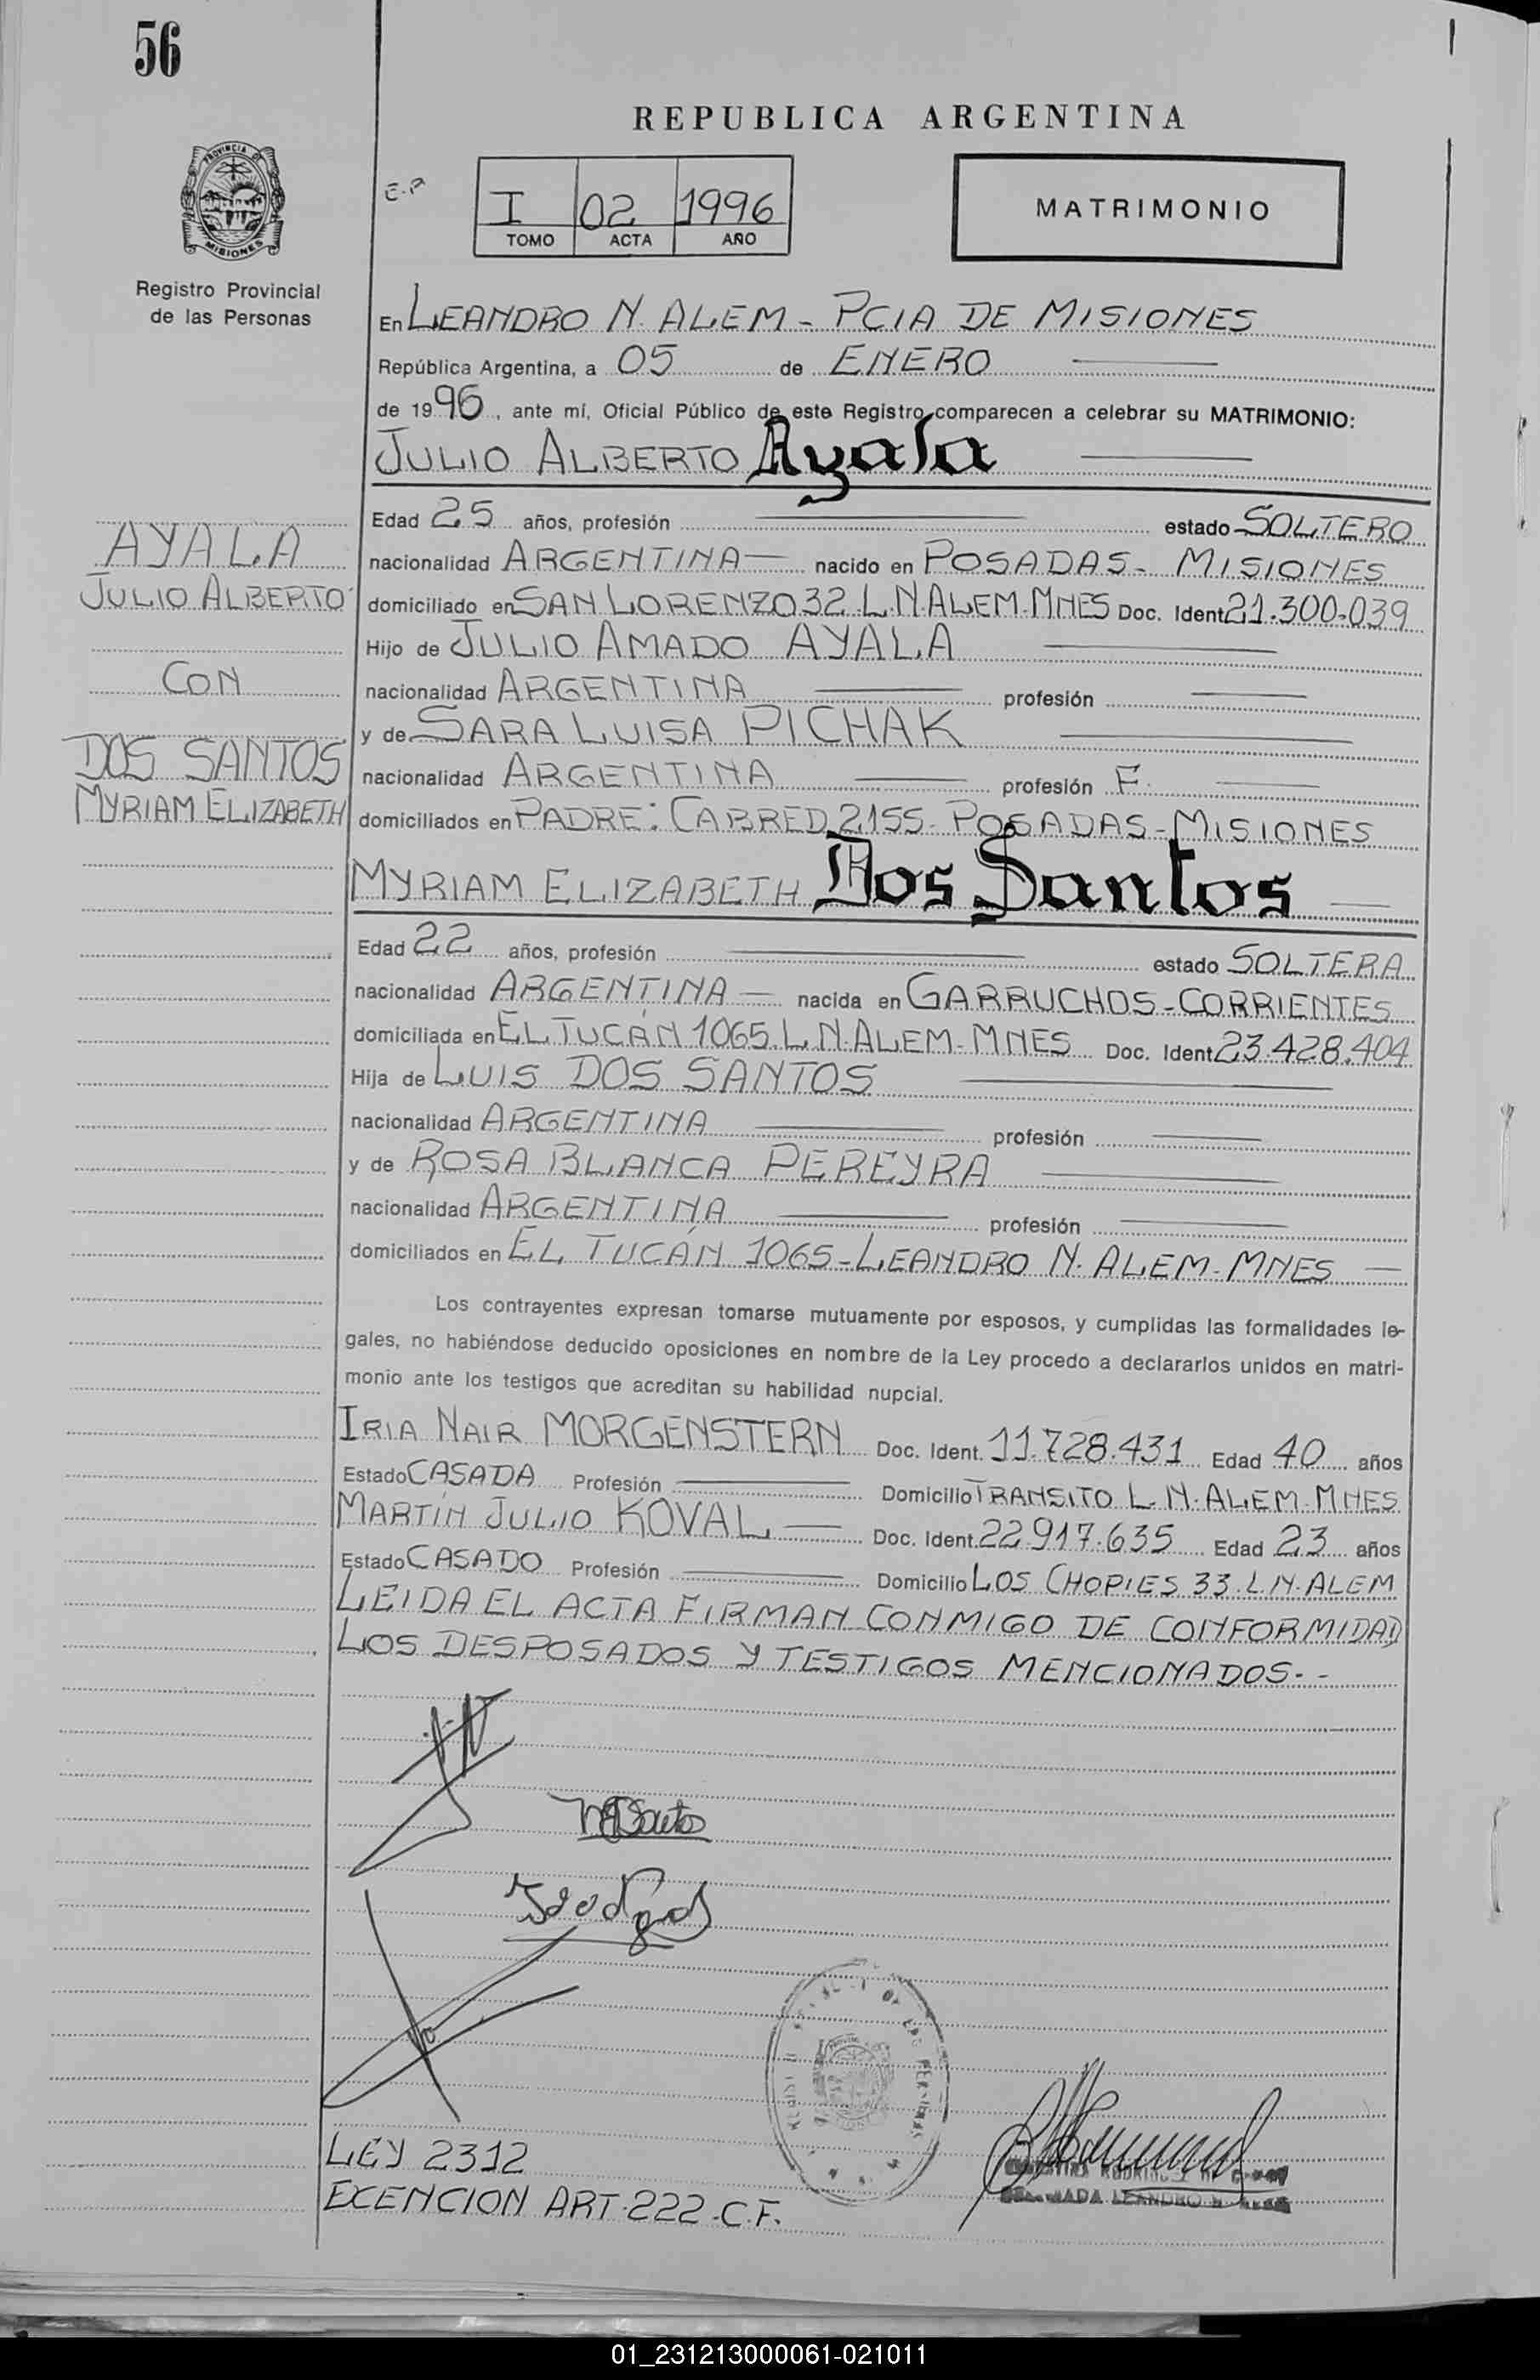 56
REPUBLICA ARGENTINA
PROVINCIA DE
MISIONES
E.P
I 02 1996
TOMO ACTA AÑO
MATRIMONIO
Registro Provincial
de las Personas
En LEANDRO N. ALEM - PCIA DE MISIONES
República Argentina, a 05 de ENERO
de 1996, ante mí, Oficial Público de este Registro comparecen a celebrar su MATRIMONIO:
JULIO ALBERTO Ayala
Edad 25 años, profesión — estado SOLTERO
AYALA
nacionalidad ARGENTINA — nacido en POSADAS - MISIONES
JULIO ALBERTO
domiciliado en SAN LORENZO 32 L.N.ALEM-MNES Doc. Ident 21.300.039
Hijo de JULIO AMADO AYALA —
CON
nacionalidad ARGENTINA — profesión —
y de SARA LUISA PICHAK —
DOS SANTOS
nacionalidad ARGENTINA — profesión F. —
MYRIAM ELIZABETH
domiciliados en PADRE: CABRED 2155 - POSADAS - MISIONES
MYRIAM ELIZABETH Dos Santos —
Edad 22 años, profesión — estado SOLTERA
nacionalidad ARGENTINA — nacida en GARRUCHOS - CORRIENTES
domiciliada en EL TUCÁN 1065 L.N.ALEM-MNES Doc. Ident 23.428.404
Hija de LUIS DOS SANTOS —
nacionalidad ARGENTINA — profesión —
y de ROSA BLANCA PEREYRA —
nacionalidad ARGENTINA — profesión —
domiciliados en EL TUCÁN 1065 - LEANDRO N. ALEM - MNES —
Los contrayentes expresan tomarse mutuamente por esposos, y cumplidas las formalidades le-
gales, no habiéndose deducido oposiciones en nombre de la Ley procedo a declararlos unidos en matri-
monio ante los testigos que acreditan su habilidad nupcial.
IRIA NAIR MORGENSTERN Doc. Ident. 11.728.431 Edad 40 años
Estado CASADA Profesión — Domicilio TRANSITO L.N.ALEM-MNES
MARTÍN JULIO KOVAL — Doc. Ident. 22.917.635 Edad 23 años
Estado CASADO Profesión — Domicilio LOS CHOPIES 33.L.N.ALEM
LEIDA EL ACTA FIRMAN CONMIGO DE CONFORMIDAD
LOS DESPOSADOS Y TESTIGOS MENCIONADOS.-
LEY 2312
EXENCION ART.222.C.F.
LEANDRO N.
01_231213000061-021011